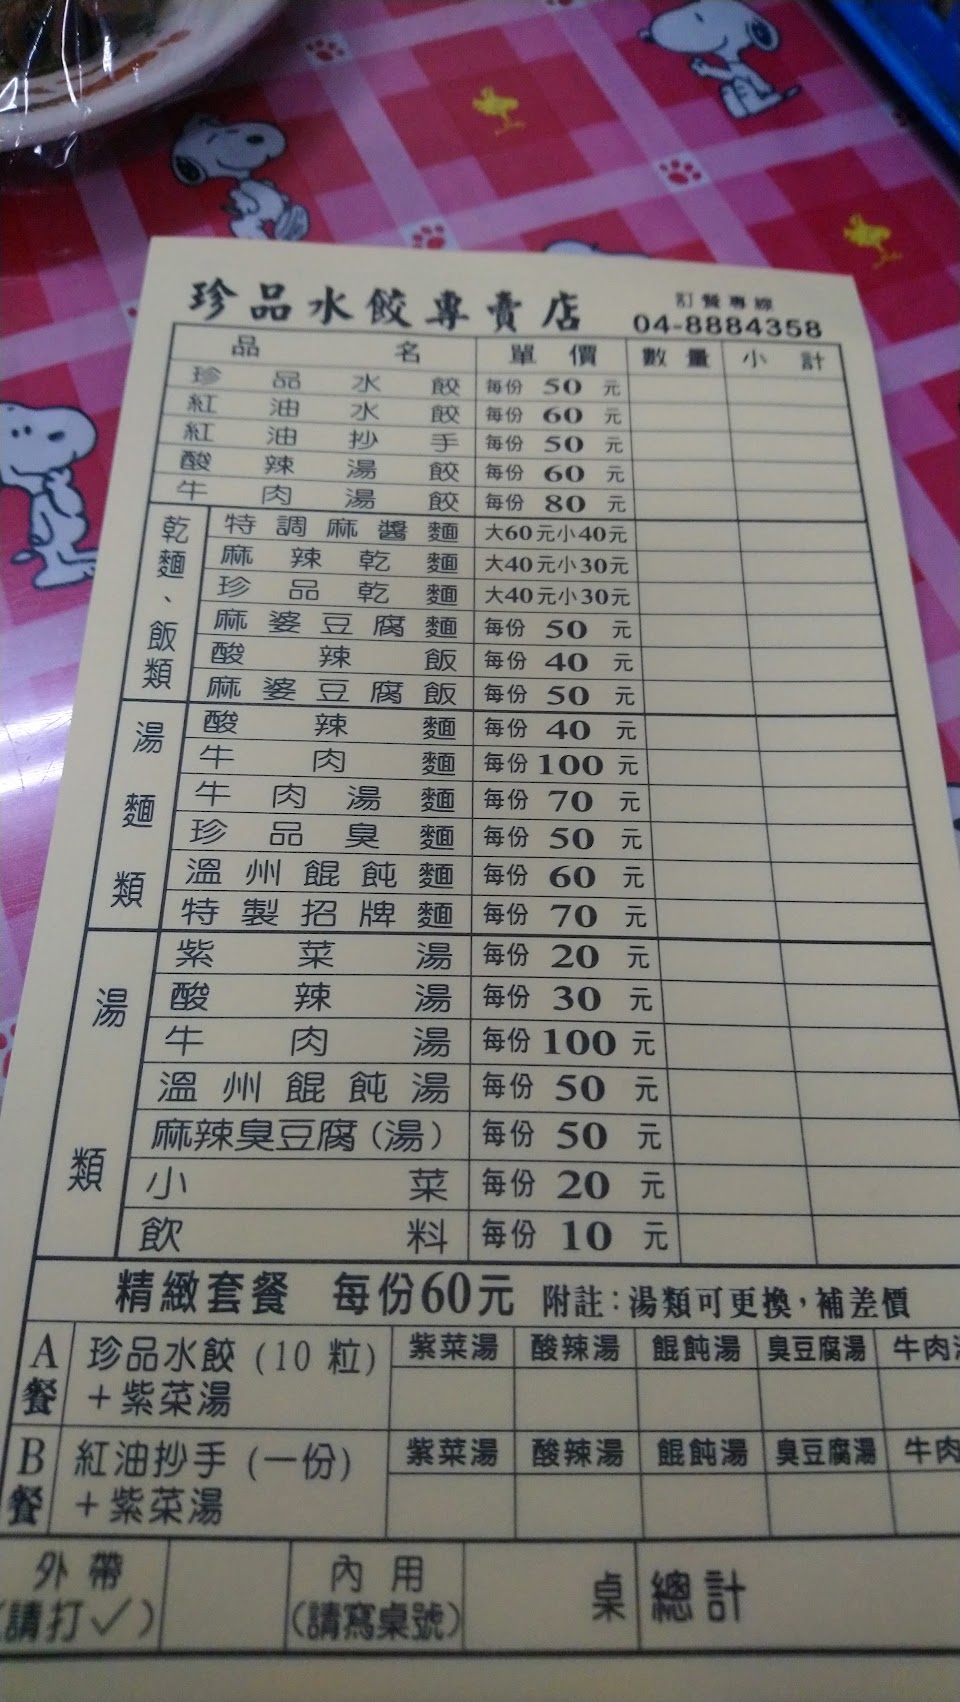 珍品水餃專賣店 訂餐專線
04-8884358
品名 單價 數量 小計
珍品水餃 每份 50 元
紅油水餃 每份 60 元
紅油抄手 每份 50 元
酸辣湯餃 每份 60 元
牛肉湯餃 每份 80 元
乾麵、飯類
特調麻醬麵 大60元小40元
麻辣乾麵 大40元小30元
珍品乾麵 大40元小30元
麻婆豆腐麵 每份 50 元
酸辣飯 每份 40 元
麻婆豆腐飯 每份 50 元
湯麵類
酸辣麵 每份 40 元
牛肉麵 每份 100 元
牛肉湯麵 每份 70 元
珍品臭麵 每份 50 元
溫州餛飩麵 每份 60 元
特製招牌麵 每份 70 元
湯類
紫菜湯 每份 20 元
酸辣湯 每份 30 元
牛肉湯 每份 100 元
溫州餛飩湯 每份 50 元
麻辣臭豆腐(湯) 每份 50 元
小菜 每份 20 元
飲料 每份 10 元
精緻套餐 每份60元 附註:湯類可更換,補差價
A餐 珍品水餃(10粒)
+紫菜湯
紫菜湯 酸辣湯 餛飩湯 臭豆腐湯 牛肉
B餐 紅油抄手(一份)
+紫菜湯
紫菜湯 酸辣湯 餛飩湯 臭豆腐湯 牛肉
外帶
(請打✓)
內用
(請寫桌號)
桌 總計